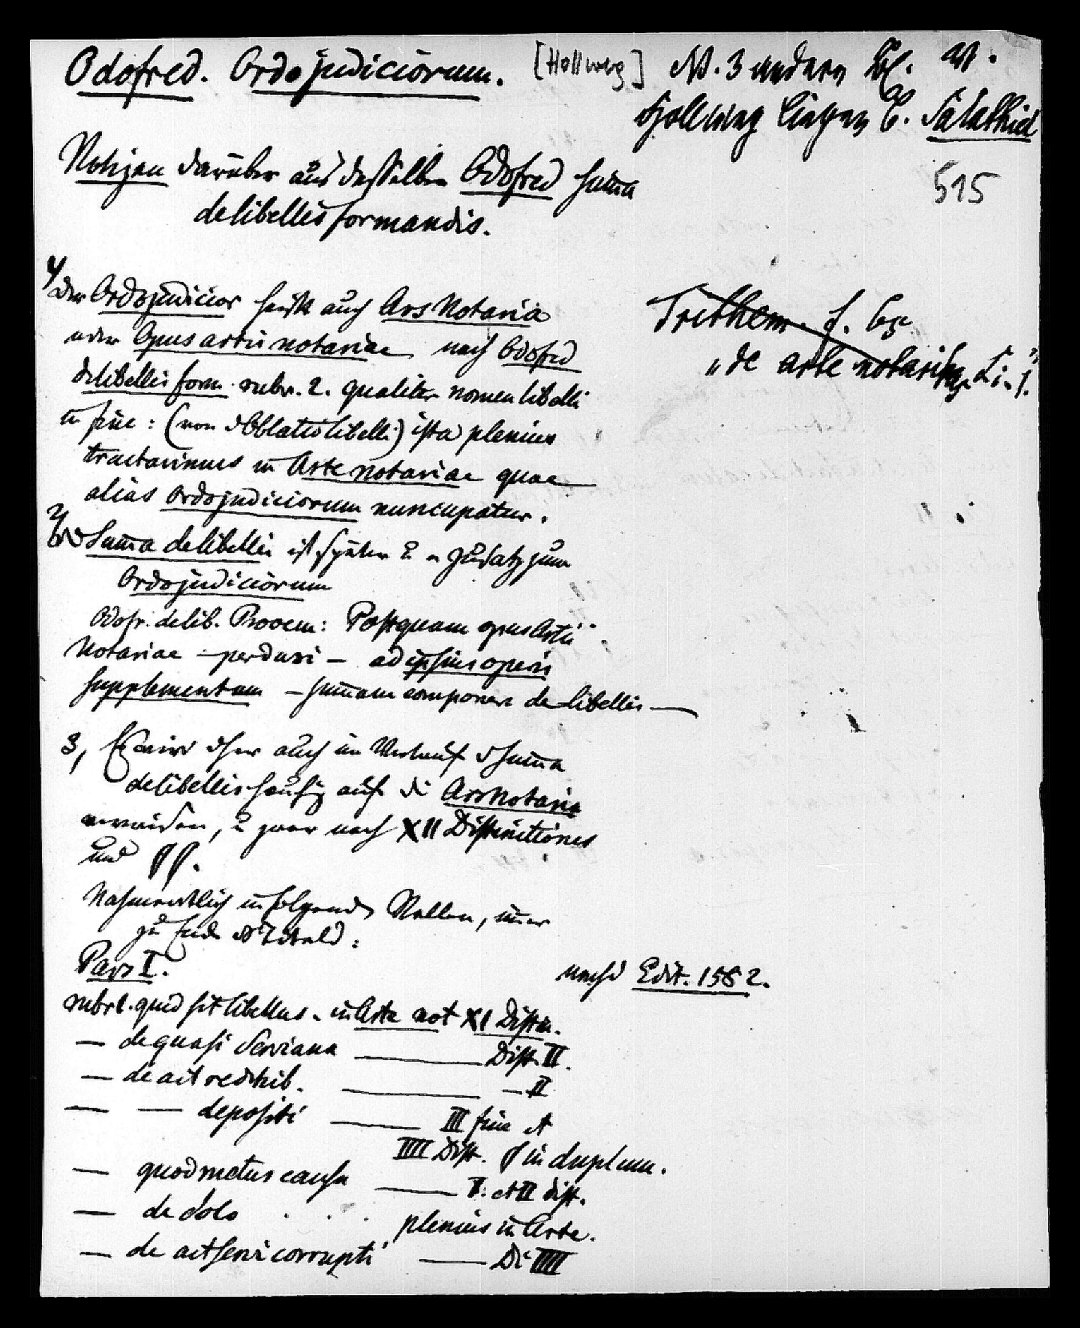 Odofred. Ordo judiciorum. [Hollweg] NB. 3 andere Bl. v.
Hollweg liegen b. Salathiel
Notizen darüber aus desselben Odofred Summa
de libellis formandis.
515
1) Der Ordo judicior heißt auch Ars Notaria
oder Opus artis notariae nach Odofred
de libellis form. rubr. 2. qualiter nomen libelli
in fine: (von d Oblatio libelli) ista plenius
tractavimus in Arte notariae quae
alias Ordo judiciorum nuncupatur.
Trithem. f.
„de arte notariae Li. 1."
2) Summa de libellis ist später u Zusatz zum
Ordo judiciorum
Odofr. de lib. Prooem: Postquam opus Artis
Notariae — perduxi — ad ipsius operis
supplementum — summam componere de libellis —
3, Es wird daher auch im Verlauf d Summa
de libellis häufig auf die Ars Notaria
verwiesen, u zwar nach XII Distinctiones
und §§.
Nahmentlich in folgenden Stellen,
zu Ende d Titels:
Pars I. nach Edit. 1582.
rubr 1. quid sit libellus. in Arte not XI Distin.
— de quasi Serviana — Dist. II.
— de act redhib. — — II
— — depositi — III fin et
IIII Dist. § in duplum.
— quod metus causa — I. et II dist.
— de dolo . . . plenius in Arte.
— de act servi corrupti — Di IIII